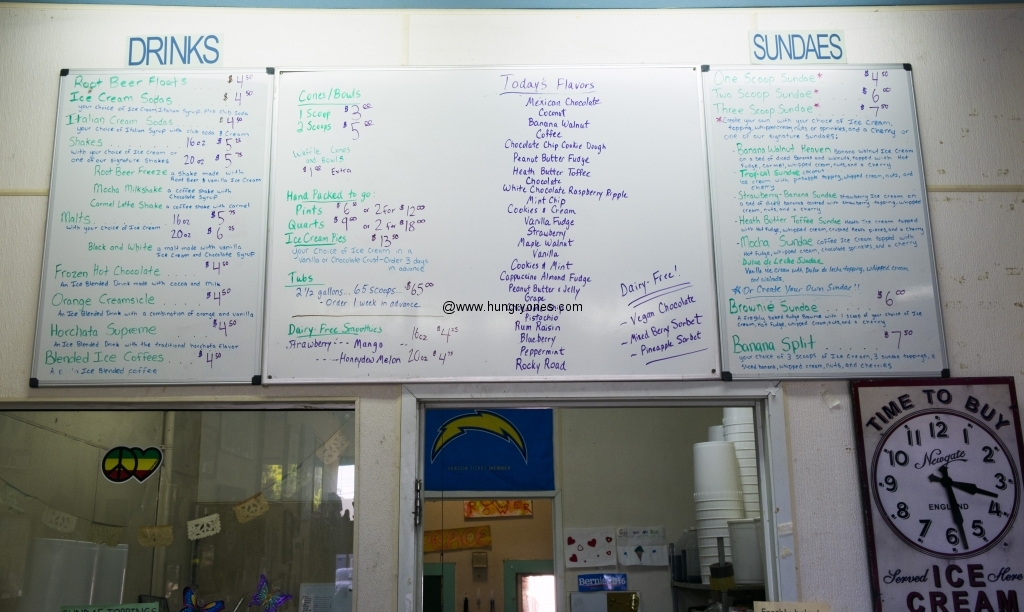 DRINKS
Root Beer Floats $4.50
Ice Cream Sodas $4.50
Italian Cream Sodas $4.50
your choice of Italian Syrup with club soda & Cream
Shakes 16oz $5
with your choice of Ice Cream or
one of our signature shakes 20oz $5.75
Root Beer Freeze a shake made with
Root Beer & Vanilla Ice Cream
Mocha Milkshake a coffee shake with
Chocolate Syrup
Carmel Latte Shake a coffee shake with carmel
Malts 16oz $5.75
With your choice of Ice Cream 20oz $6
Black and White a malt made with vanilla
Ice Cream and Chocolate Syrup
Frozen Hot Chocolate $4.50
An Ice Blended Drink made with cocoa and milk
Orange Creamsicle $4.50
An Ice Blended Drink with a combination of orange and vanilla
Horchata Supreme $4.50
An Ice Blended Drink with the traditional horchata flavor
Blended Ice Coffees $4.50
Ice Blended coffee
Cones/Bowls
1 Scoop $3.00
2 Scoops $5.00
Waffle Cones
and Bowls
$1.00 Extra
Hand Packed to go:
Pints $6 or 2 for $12.00
Quarts $9 or 2 for $18.00
Ice Cream Pies $13
Your choice of Ice Cream in a
Vanilla or Chocolate Crust-Order 3 days
in advance
Tubs
2 1/2 gallons... 65 scoops... $65.00
- Order 1 week in advance
Dairy-Free Smoothies
Strawberry - - - Mango 16oz $4
- - - - Honeydew Melon 20oz $4
Today's Flavors
Mexican Chocolate
Coconut
Banana Walnut
Coffee
Chocolate Chip Cookie Dough
Peanut Butter Fudge
Heath Butter Toffee
Chocolate
White Chocolate Raspberry Ripple
Mint Chip
Cookies & Cream
Vanilla Fudge
Strawberry
Maple Walnut
Vanilla
Cookies & Mint
Cappuccino Almond Fudge
Peanut Butter & Jelly
Grape
@www.hungryones.com
Pistachio
Rum Raisin
Blueberry
Peppermint
Rocky Road
Dairy-Free!
- Vegan Chocolate
- Mixed Berry Sorbet
- Pineapple Sorbet
SUNDAES
One Scoop Sundae* $4
Two Scoop Sundae* $6
Three Scoop Sundae* $7.50
*Create your own with your choice of Ice Cream,
topping, whipped cream, nuts or sprinkles, and a Cherry or one
of our Signature Sundaes:
- Banana Walnut Heaven Banana Walnut Ice Cream
Tropical Sundae coconut
ice cream with pineapple topping, whipped cream, nuts, and a
cherry
- Strawberry-Banana Sundae Strawberry Ice Cream on
- Heath Butter Toffee Sundae
- Mocha Sundae coffee Ice Cream topped with
hot fudge, whipped cream, chocolate sprinkles, and a cherry
Dulce de Leche Sundae
Vanilla ice cream with Dulce de leche topping, whipped cream,
and walnuts
*Or Create Your Own Sundae!!
Brownie Sundae $6.00
Banana Split $7.50
your choice of 3 scoops of Ice Cream, 3 sundae toppings, a
sliced banana, whipped cream, nuts, and cherries
TIME TO BUY
12
1
2
3
4
5
6
7
8
9
10
11
Newgate
ENGLAND
Served ICE Here
CREAM
SEASON TICKET MEMBER
Bernie
SUNDAE TOPPINGS